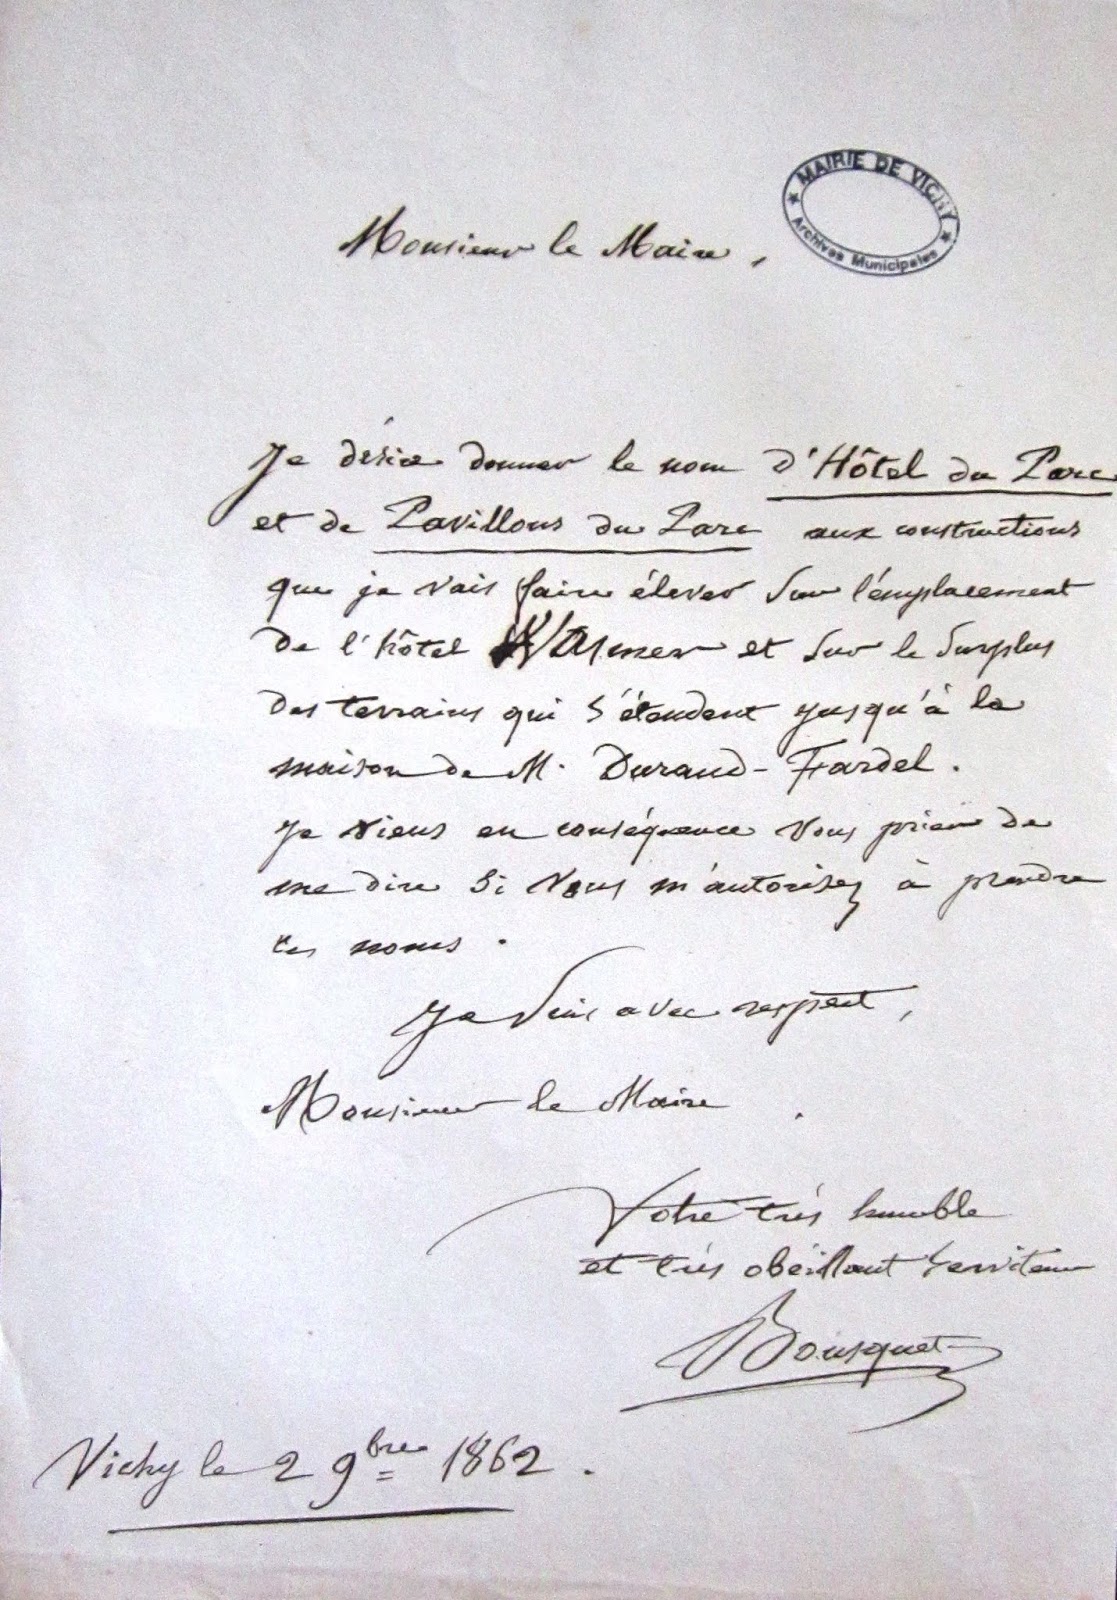 MAIRIE DE VICHY
Archives Municipales
Monsieur le Maire,
Je désire donner le nom d'Hôtel du Parc
et de Pavillons du Parc aux constructions
que je vais faire élever sur l'émplacement
de l'hôtel et sur le surplus
des terrains qui s'étendent jusqu'à la
maison de M. Durand-Fardel.
Je viens en conséquence vous prier de
me dire si vous m'autorisez à prendre
ces noms.
Je suis avec respect,
Monsieur le Maire
Votre très humble
et très obéissant serviteur
Bousquet
Vichy le 2 9bre 1862.